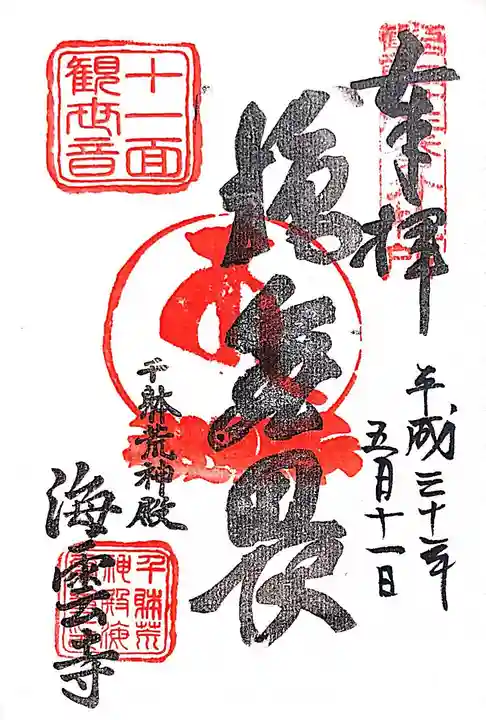 奉拝
平成三十年
五月十一日
施無畏
十一面
観世音
千躰荒神殿
海雲寺
千躰荒
神殿海